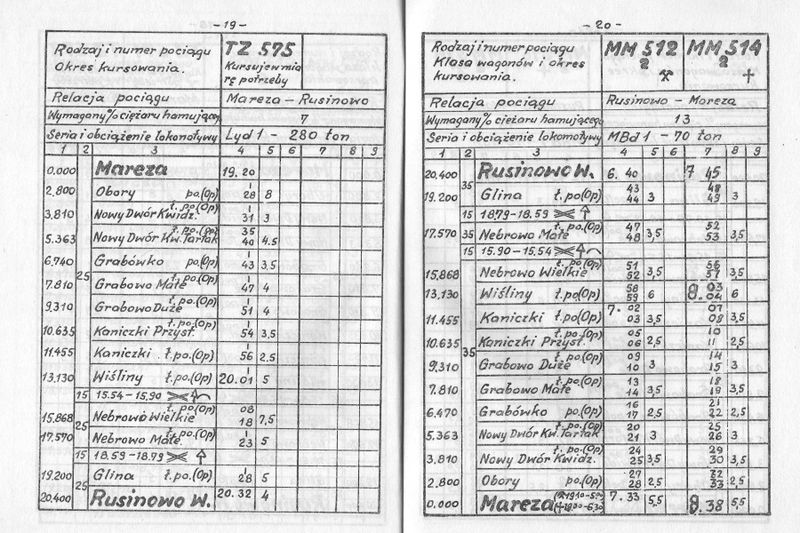 - 19 -
Rodzaj i numer pociągu TZ 575
Okres kursowania. Kursuje w mia
rę potrzeby
Relacja pociągu Mareza - Rusinowo
Wymagany % ciężaru hamującego 7
Seria i obciążenie lokomotywy Lyd 1 - 280 ton
1 2 3 4 5 6 7 8 9
0,000 Mareza 19.20
2,800 Obory po.(Op) | 28 8
3,810 Nowy Dwór Kwidz. t.po.(Op) | 31 3
5.363 Nowy Dwór Kw. Tartak t.po.(Op) 35 40 4.5
6,740 Grabówko po.(Op) | 43 3,5
25
7.810 Grabowo Małe t.po.(Op) | 47 4
9,310 Grabowo Duże t.po.(Op) | 51 4
10.635 Kaniczki Przyst. t.po.(Op) | 54 3,5
11.455 Kaniczki t.po.(Op) | 56 2.5
13,130 Wiśliny t.po.(Op) 20.01 5
15 15.54 - 15,90
15,868 Nebrowo Wielkie t.po.(Op) 08 18 7,5
25
17.570 Nebrowo Małe t.po.(Op) | 23 5
15 18.59 - 18.79
19,200 Glina t.po.(Op) | 28 5
25
20,400 Rusinowo W. 20.32 4
- 20 -
Rodzaj i numer pociągu MM 512 MM 514
Klasa wagonów i okres 2 2
kursowania.
Relacja pociągu Rusinowo - Mareza
Wymagany % ciężaru hamującego 13
Seria i obciążenie lokomotywy MBd 1 - 70 ton
1 2 3 4 5 6 7 8 9
20,400 Rusinowo W. 6.40 7 45
35
19.200 Glina t.po(Op) 43 44 3 48 49 3
15 18.79 - 18.59
17,570 35 Nebrowo Małe t.po(Op) 47 48 3,5 52 53 3,5
15 15.90 - 15.54
15,868 Nebrowo Wielkie t.po.(Op) 51 52 3,5 56 57 3,5
13,130 Wiśliny t.po.(Op) 58 59 6 8.03 8.04 6
11.455 Kaniczki t.po.(Op) 7.02 03 3,5 07 08 3,5
10.635 Kaniczki Przyst. t.po.(Op) 05 06 2,5 10 11 2,5
35
9,310 Grabowo Duże t.po.(Op) 09 10 3 14 15 3
7.810 Grabowo Małe t.po(Op) 13 14 3,5 18 19 3,5
6,470 Grabówko po.(Op) 16 17 2,5 21 22 2,5
5.363 Nowy Dwór Kw. Tartak t.po.(Op) 20 21 3 25 26 3
3,810 Nowy Dwór Kwidz. t.po.(Op) 24 25 3,5 29 30 3,5
2.800 Obory po.(Op) 27 28 2,5 32 33 2,5
0.000 Mareza 7.33 5,5 8.38 5,5